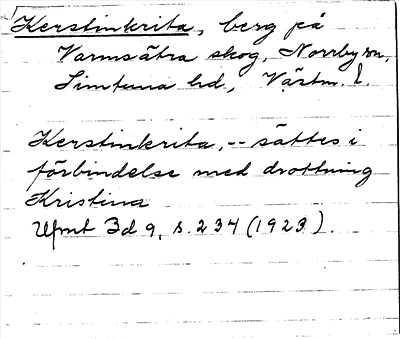 Kerstinkrita, berg på
Varmsätra skog, Norrby sn,
Simtuna hd, Västm. l.
Kerstinkrita, -- sättes i
förbindelse med drottning
Kristina
Upmt Bd 9, s. 234 (1923).